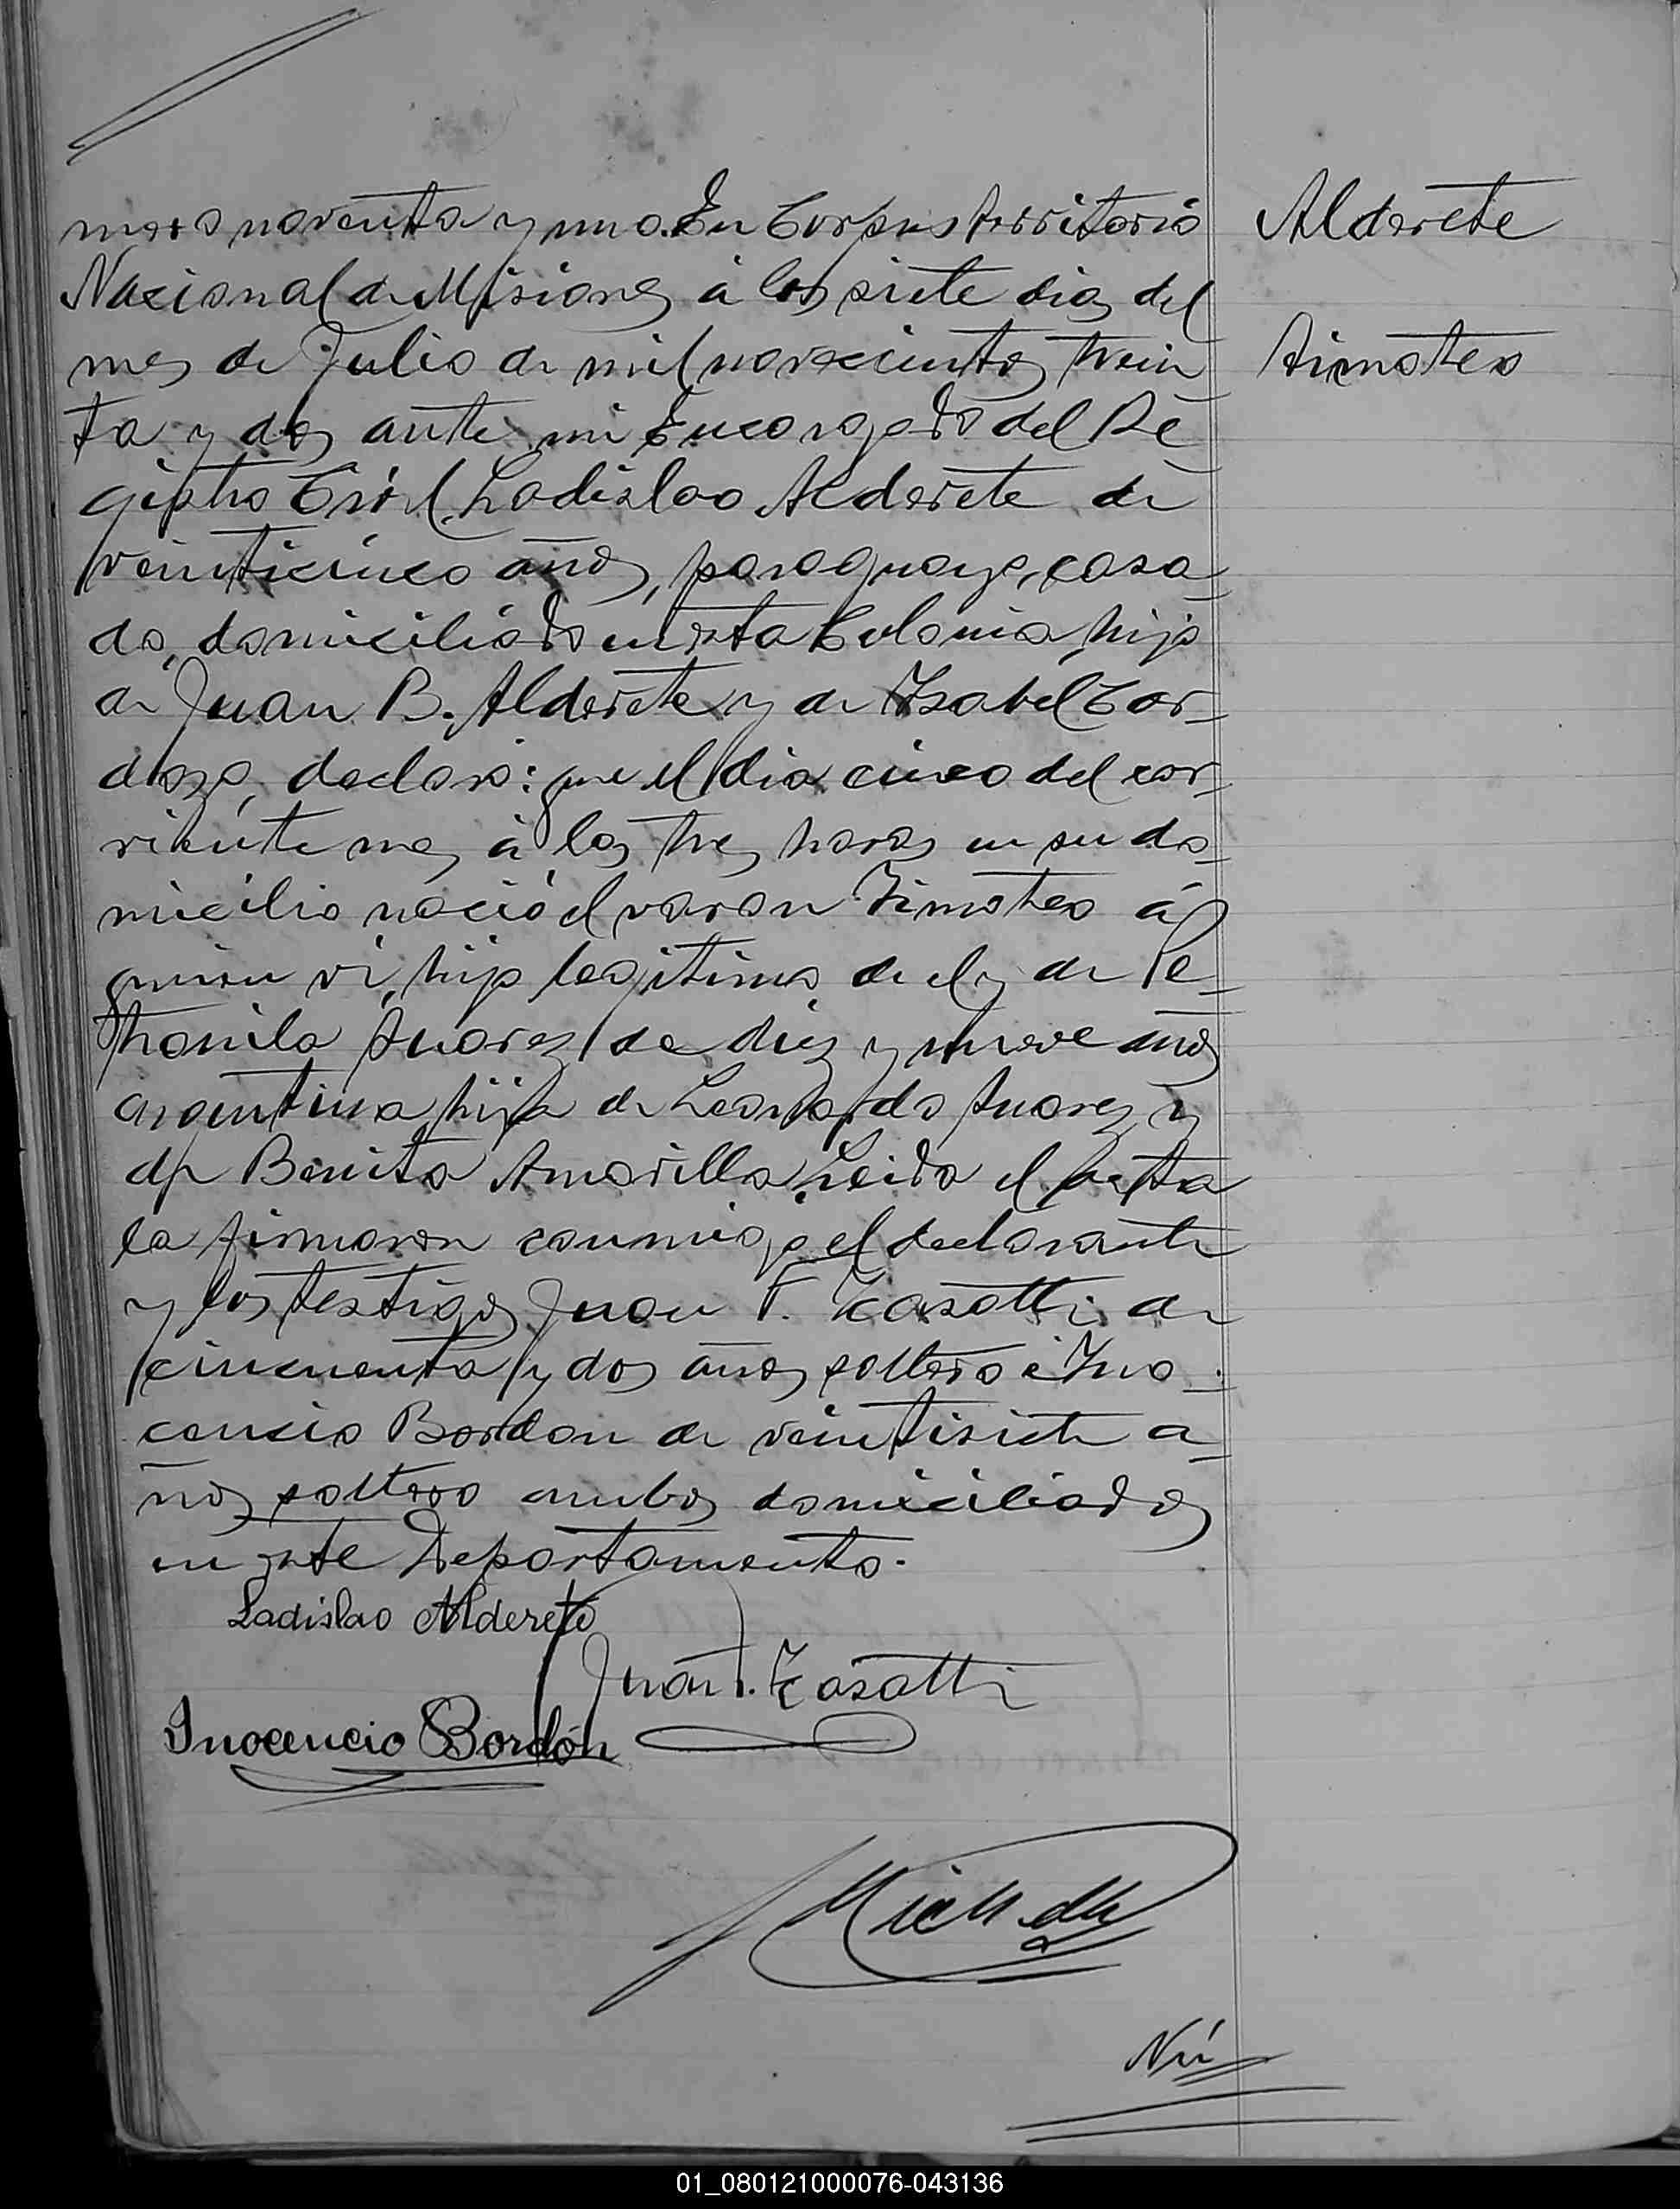 mero noventa y uno. En Corpus territorio
Nacional de Misiones á los siete dias del
mes de Julio de mil novecientos trein
ta y dos ante mi Encargado del Re
gistro Civil, Ladislao Alderete de
veinticinco años, paraguayo, casa-
do, domiciliado en esta Colonia, hijo
de Juan B. Alderete y de Isabel Car-
dozo, declaro: que el dia cinco del cor-
riente mes á las tres horas en su do-
micilio nació el varon Timoteo á
quien vi, hijo legitimo de el y de Pe-
tronila Juarez de diez y nueve años
argentina, hija de Leonardo Juarez y
de Benita Amarilla. Leida el acta
la firmaron conmigo el declarante
y los testigos Juan F. Casatti de
cincuenta y dos años soltero é Ino-
cencio Bordon de veintisiete a-
ños soltero ambos domiciliados
en este Departamento.
Ladislao Alderete
Juan F. Casatti
Inocencio Bordón
Nú
Alderete
Timoteo
01_080121000076-043136